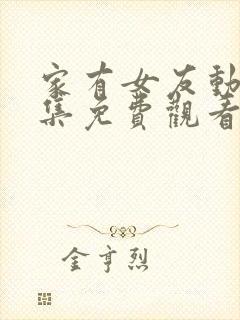 家有女友動
集免費觀看
金亨烈